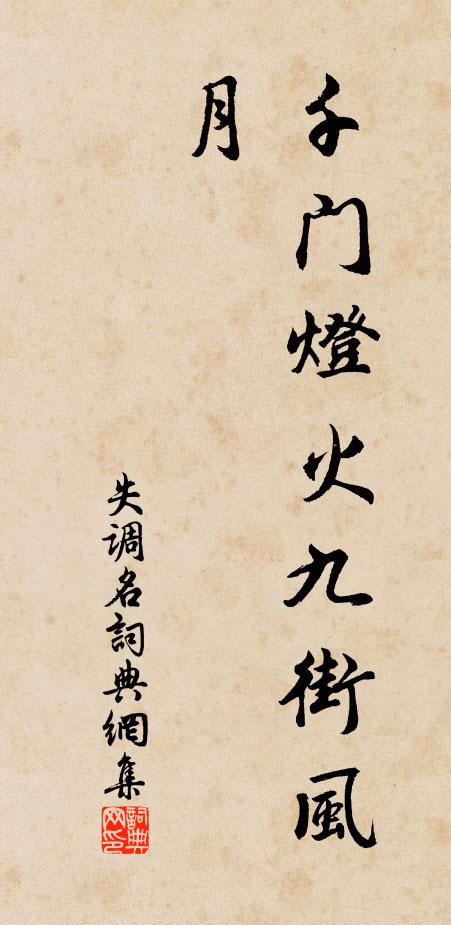 千門燈火九街風
月
失調名詞典網集
詞典
网印